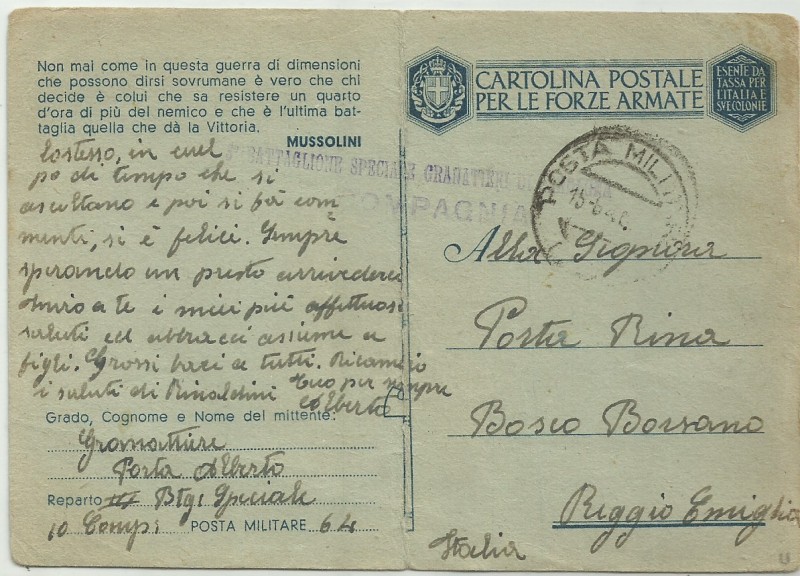 Non mai come in questa guerra di dimensioni
che possono dirsi sovrumane è vero che chi
decide è colui che sa resistere un quarto
d'ora di più del nemico e che è l'ultima bat-
taglia quella che dà la Vittoria.
MUSSOLINI
lostesso, in quel
po di tempo che si
ascoltano e poi si fà com
menti, si è felici. Sempre
sperando un presto arrivederci
invio a te i miei più affettuosi
saluti ed abbracci assieme a
figli. Grossi baci a tutti. Ricambio
i saluti di Rinaldini Tuo per sempre
Alberto
Grado, Cognome e Nome del mittente:
Granattiere
Porta Alberto
Reparto III Btg: Speciale
10 Comp: POSTA MILITARE 64
BATTAGLIONE SPECIALE GRANATIERI DI
COMPAGNIA
CARTOLINA POSTALE
PER LE FORZE ARMATE
ESENTE DA
TASSA PER
L'ITALIA E
SVE COLONIE
POSTA MILITARE
Alla Signora
Porta Rina
Bosco Borsano
Reggio Emiglia
Italia